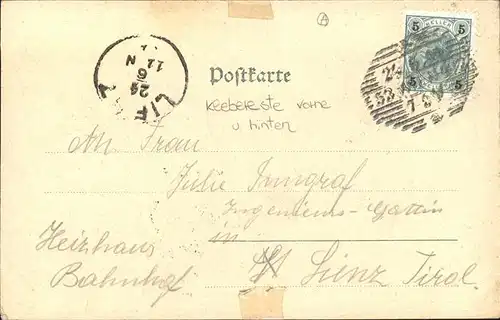 A
5 HELLER 5
5 5
24
11 N
6
24
LIE
Postkarte
Kleberreste vorne
u. hinten
An Frau
Julie Inngraf
Ingenieurs-Gattin
in
Heizhaus
Bahnhof
Lienz Tirol.